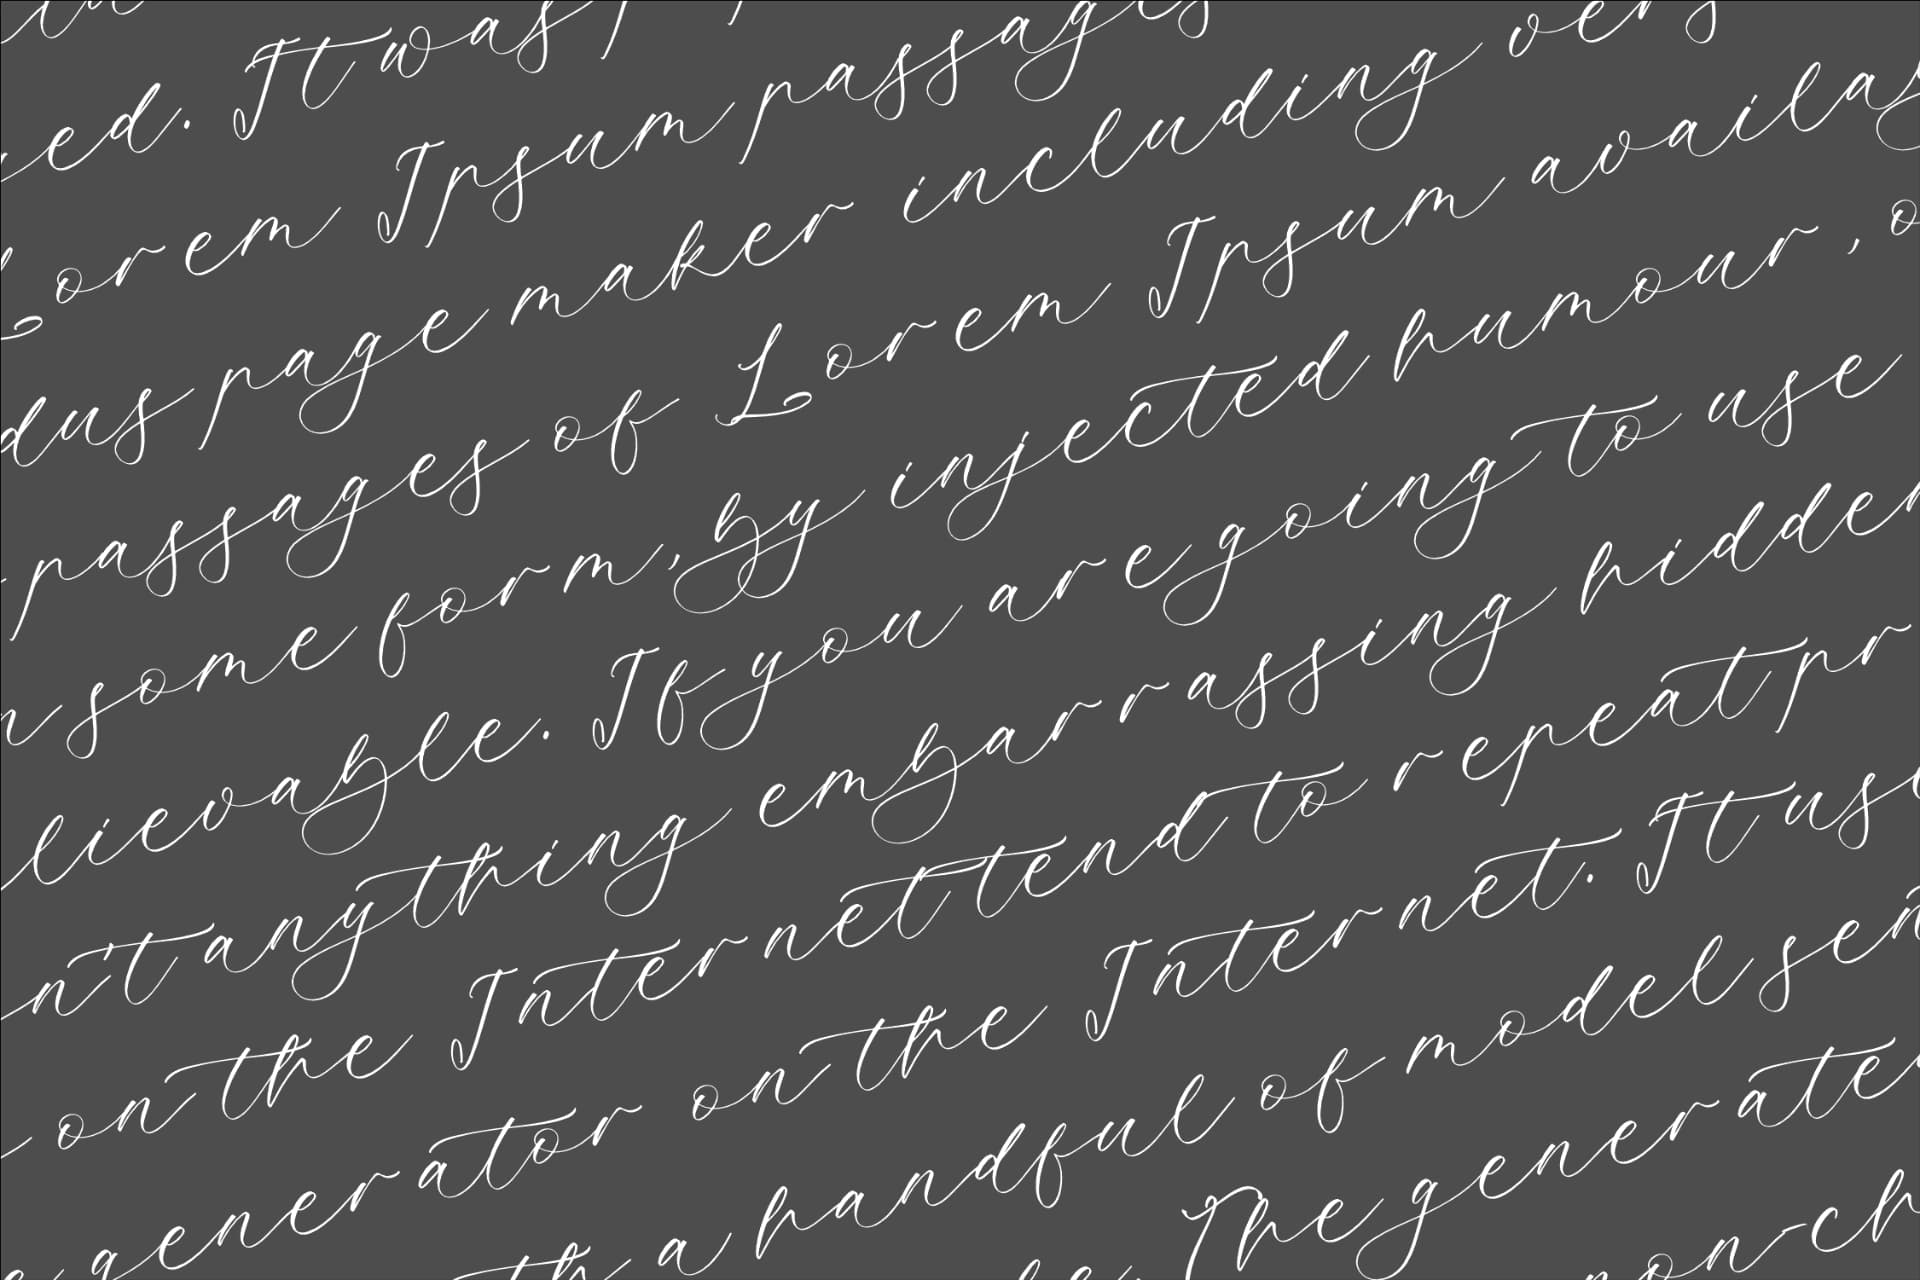 ed. It was
Lorem Ipsum passages
dus page maker including vers
passages of Lorem Ipsum availa
n some form, by injected humour, o
lievable. If you are going to use
n't anything embarrassing hidden
on the Internet tend to repeat pr
generator on the Internet. It us
th a handful of model sen
The generate
non-ch